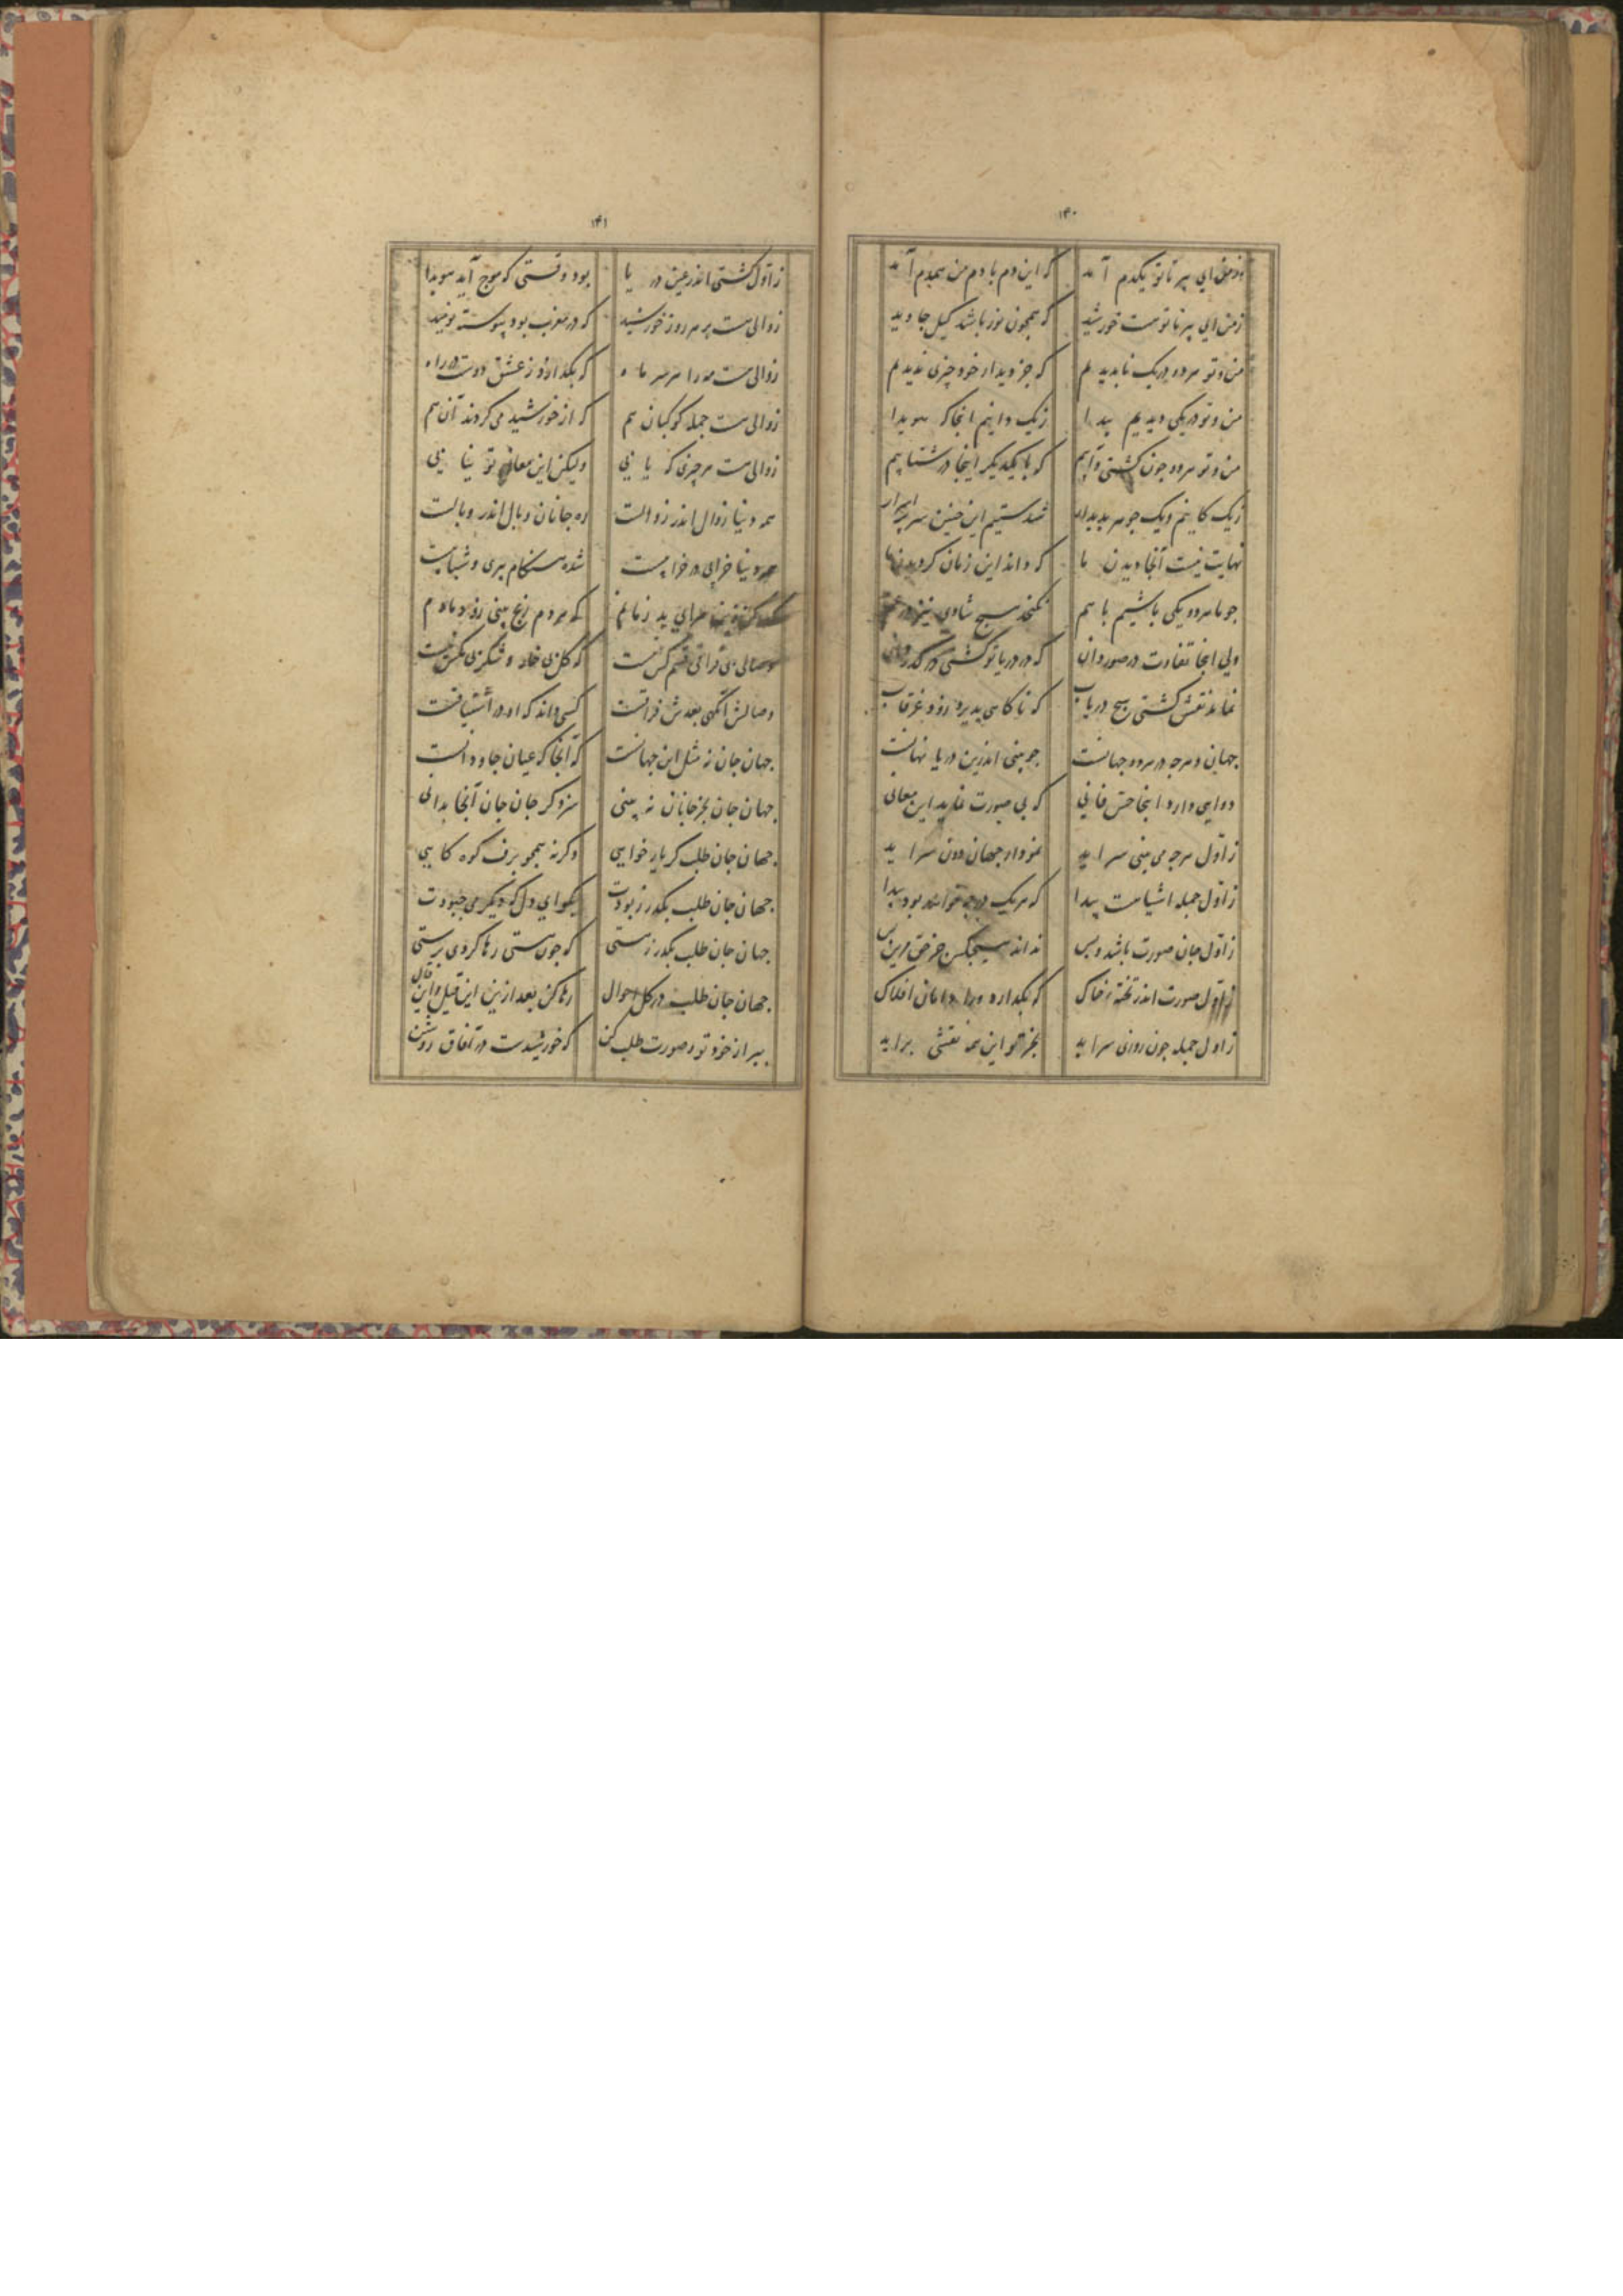 ۱۴۰
ز من ای پیر تا تو یکدم آمد که این دم با دم من همدم آمد
ز من ای پیر تا تو هست خورشید که همچون نور باشد کل جاوید
من و تو هر دو در یک نابدیدیم که جز دیدار خود چیزی ندیدیم
من و تو در یکی دیدیم پیدا ز یک دانیم اینجا که هویدا
من و تو هر دو چون کشتی و آبیم که با یکدیگر اینجا در شتابیم
ز یک کانیم و یک جوهر بدیدار شدستیم این چنین سر اسرار
نهایت نیست آنجا دیدن ما که داند این زمان کردیدن ما
چو ما هر دو یکی باشیم با هم نکنجد هیچ شادی نیز در غم
ولی اینجا تفاوت در صور دان که در دریا تو کشتی در کذر دان
نماند نقش کشتی هیچ دریاب که ناکاهی پدیرد زود غرقاب
جهان و هرچه در هر دو جهانست چو بینی اندرین دریا نهانست
دوایی دارد اینجا حس فانی که بی صورت نماید این معانی
ز اول هرچه می بینی سر آید نمودار جهان دون سر آید
ز اول جمله اشیا هست پیدا که هر یک در چه خواهد بود پیدا
ز اول جان صورت باشد و بس نداند هیچکس جز حق مر این بس
ز اول صورت اندر تخته خاک که بکدارد ورا دامان افلاک
ز اول جمله چون روزی سر آید بجز تو این همه نقشی بر آید
۱۴۱
ز اول کشتی اندر عین دریا بود وقتی که موج آید هویدا
زوالی هست بر هر روز خورشید که در مغرب بود پیوسته نومید
زوالی هست مه را هر سر ماه که بکدازد ز عشق دوست در راه
زوالی هست جمله کوکبان هم که از خورشید می کردند آن هم
زوالی هست هر چیزی که یابی ولیکن این معانی تو نیابی
همه دنیا زوال اندر زوالست ره جانان وبال اندر وبالست
همه دنیا خرابی در خرابیست شده هنکام پیری و شبابیست
که هر دم رنج بینی زو دمادم
وصالی بی فراقی قسم کس نیست که کل بی خار و شکر بی مکس نیست
وصالش آنکهی بعدش فراقست کسی داند که او در اشتیاقست
جهان جان نه مثل این جهانست که آنجا که عیان جاودانست
جهان جان بجز جانان نه بینی سزد کر جان جان آنجا بدانی
جهان جان طلب کر یار خواهی وکرنه همچو برف کوه کاهی
جهان جان طلب بکذر ز بودت بکو ای دل که دیکر می چه بودت
جهان جان طلب بکذر ز هستی که چون هستی رها کردی برستی
جهان جان طلب در کل احوال رها کن بعد ازین این قیل و این قال
ببر از خود تو و صورت طلب کن که خورشیدست در آفاق روشن